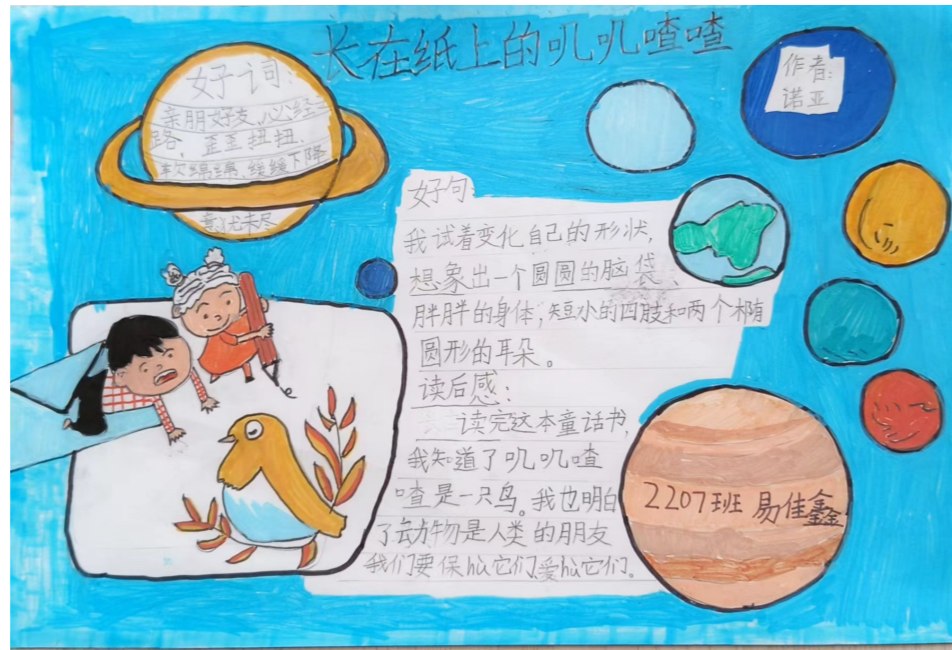 长在纸上的叽叽喳喳
好词：
亲朋好友、心经
路、歪歪扭扭、
软绵绵、缓缓下降
意犹未尽
作者：
诺亚
好句：
我试着变化自己的形状，
想象出一个圆圆的脑袋、
胖胖的身体，短小的四肢和两个椭
圆形的耳朵。
读后感：
读完这本童话书，
我知道了叽叽喳
喳是一只鸟。我也明白
了动物是人类的朋友
我们要保hù它们爱hù它们。
2207班 易佳鑫